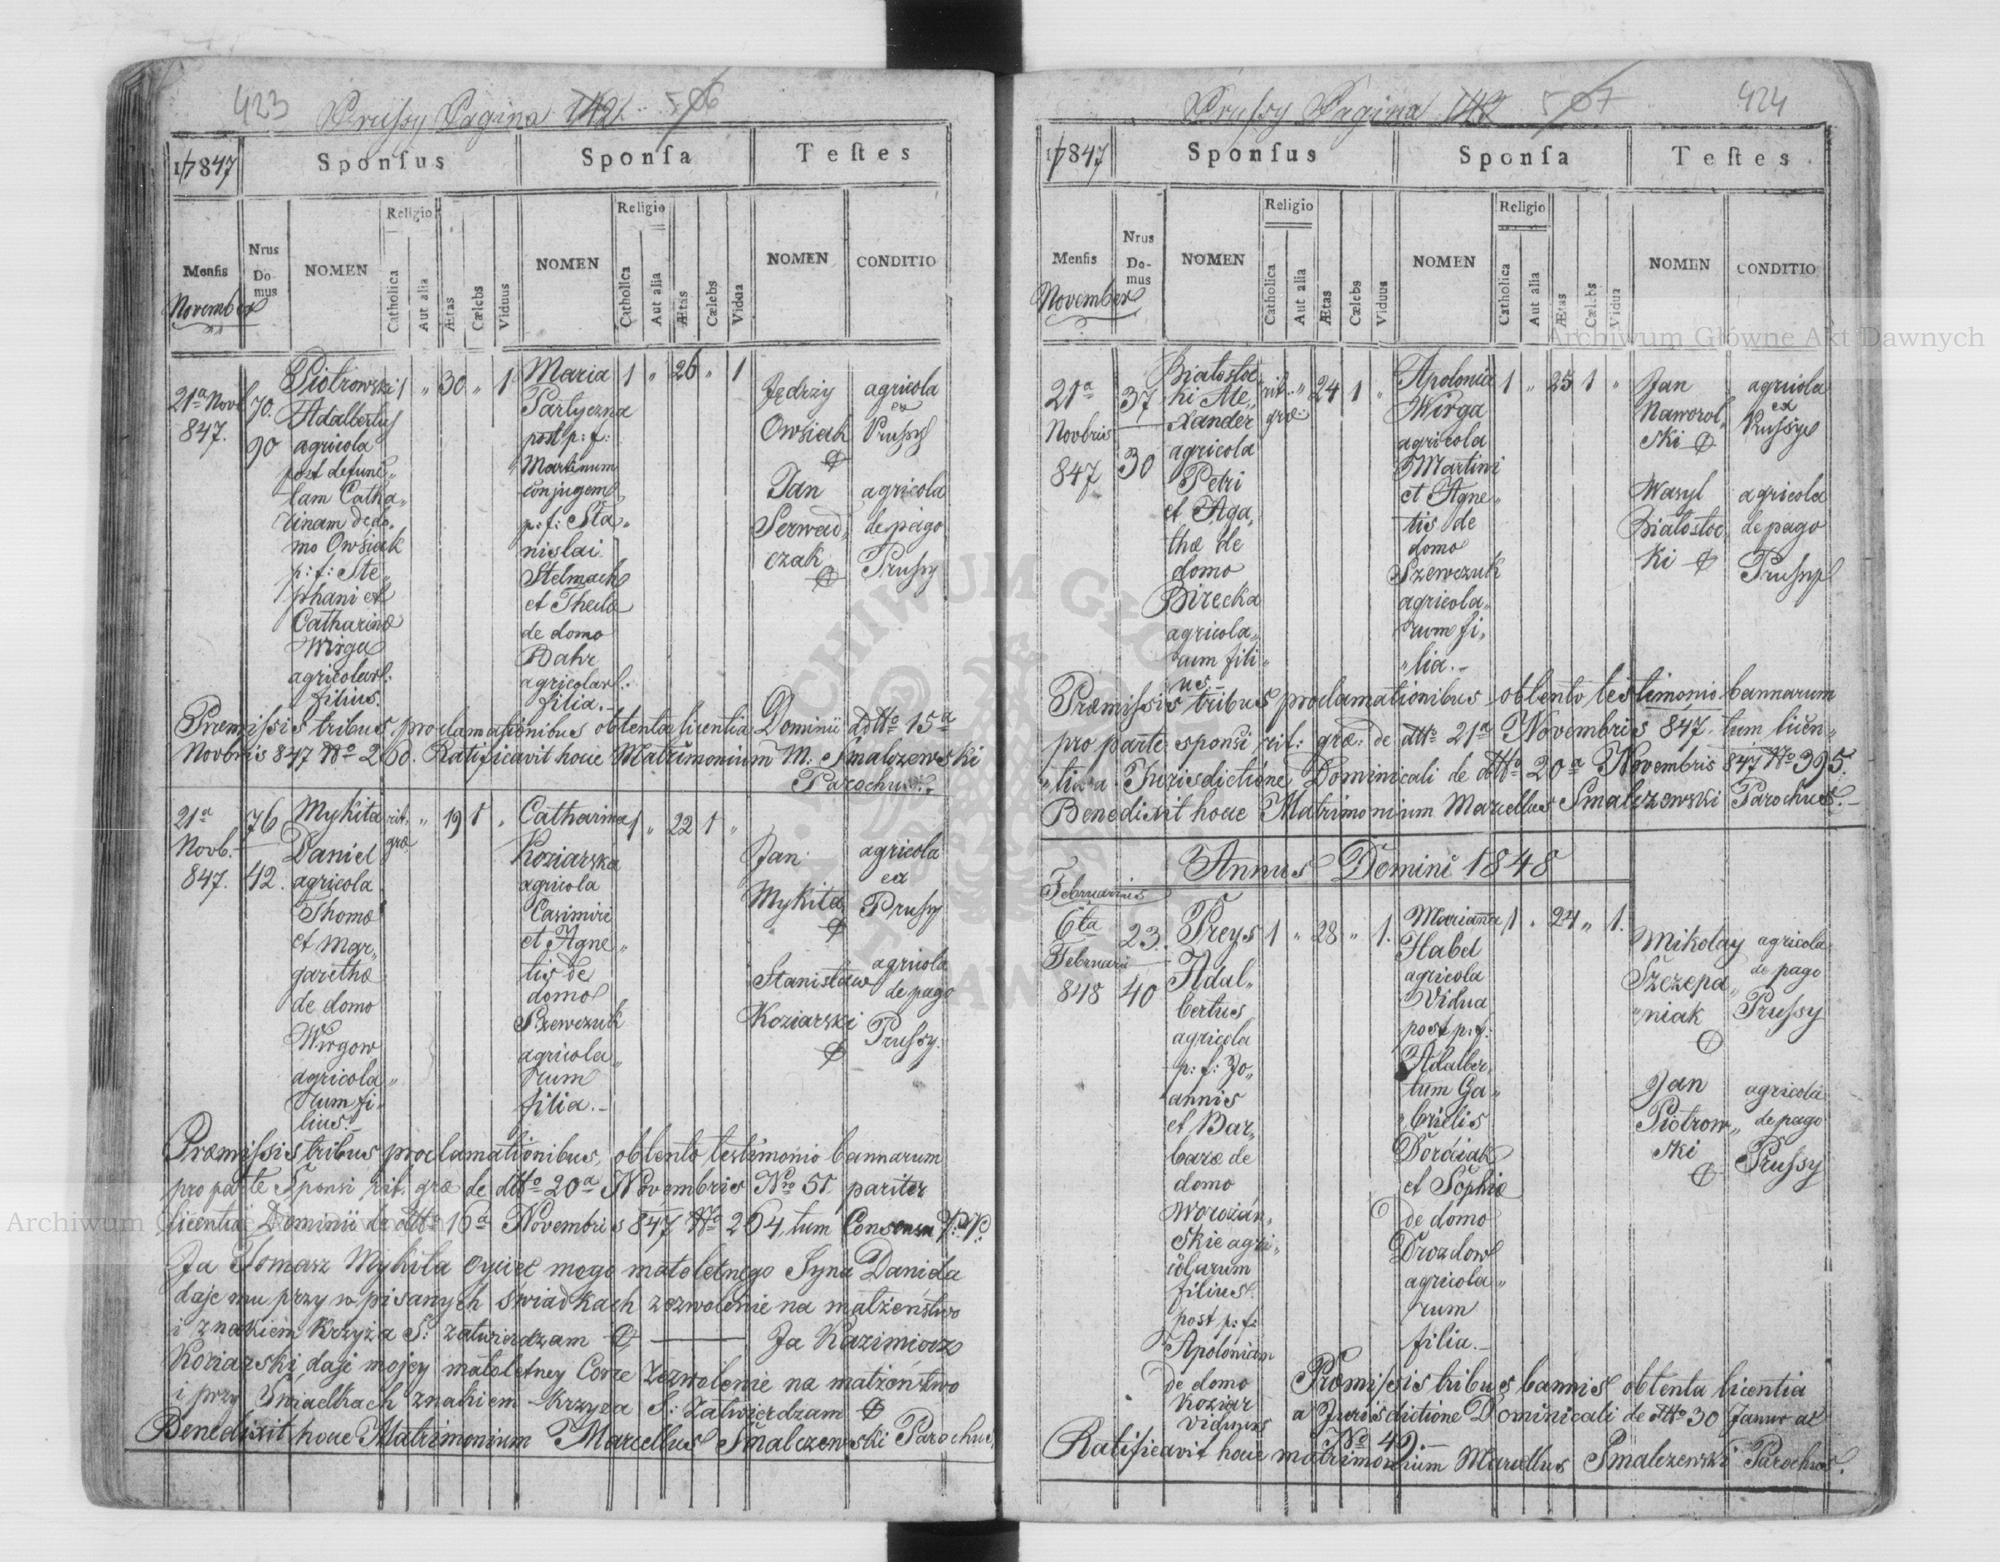 423 Prussy Pagina 142 506
1847 Sponsus Sponsa Testes
Mensis Nrus Domus NOMEN Religio Catholica Aut alia Ætas Cælebs Viduus NOMEN Religio Catholica Aut alia Ætas Cælebs Vidua NOMEN CONDITIO
November
21a Novb. 847.
70.
90
Piotrowski
Adalbertus
agricola
post defunc„
tam Catha„
rinam de do„
mo Owsiak
p: f: Ste„
phani et
Catharinæ
Wirga
agricolar:
filius.
1 „ 30 „ 1
Maria
Partyczna
post p: f:
Martinum
conjugem
p: f: Sta„
nislai
Stelmach
et Theclæ
de domo
Bahr
agricolar:
filia.
1 „ 26 „ 1
Jędrzy
Owsiak
agricola
ex
Prussy
Jan
Serwad„
czak
agricola
de pago
Prussy
Præmissis tribus proclamationibus obtenta licentia Dominii ddto 15a
Novbris 847 No 260. Ratificavit hocce Matrimonium M: Smalczewski
Parochus.
21a
Novb.
847.
76
42.
Mykita
Daniel
agricola
Thomæ
et Mar„
garethæ
de domo
Wirgow
agricola„
rum fi„
lius.
rit.
græ
„ 19 1 „
Catharina
Koziarska
agricola
Casimiri
et Agne„
tis de
domo
Szewczuk
agricola„
rum
filia.
1 „ 22 1 „
Jan
Mykita
agricola
ex
Prussy
Stanisław
Koziarski
agricola
de pago
Prussy.
Præmissis tribus proclamationibus, obtento testimonio bannarum
pro parte Sponsi rit. græ de ddto 20a Novembris Nro 51. pariter
licentia Dominii de ddto 16a Novembris 847 No 264, tum Consensu
Ja Tomasz Mykita oyciec mego małoletnego Syna Daniela
daje mu przy wpisanych świadkach zezwolenie na małżeństwo
i znakiem Krzyża S: zatwierdzam — Ja Kazimierz
Koziarski, daje mojey małoletney Corce zezwolenie na małżeństwo
i przy Swiadkach znakiem Krzyża S: Zatwierdzam
Benedixit hocce Matrimonium Marcellus Smalczewski Parochus.
Prussy Pagina 507 424
1847 Sponsus Sponsa Testes
Mensis Nrus Domus NOMEN Religio Catholica Aut alia Ætas Cælebs Viduus NOMEN Religio Catholica Aut alia Ætas Cælebs Vidua NOMEN CONDITIO
November
21a
Novbris
847
37
30
Białostoc„
ki Ale„
xander
agricola
Petri
et Aga„
thæ de
domo
Birecka
agricola„
rum fili„
us.
rit.
græ
„ 24 1 „
Apolonia
Wirga
agricola
Martini
et Agne„
tis de
domo
Szewczuk
agricola„
rum fi„
„lia.
1 „ 25 1 „
Jan
Naworol„
ski
agricola
ex
Prussy
Wasyl
Białostoc„
ki
agricola
de pago
Prussy
Præmissis tribus proclamationibus obtento testimonio bannarum
pro parte sponsi rit: græ: de ddto 21a Novembris 847. tum licen„
„tia a Jurisdictione Dominicali de ddto 20a Novembris 847 No 395.
Benedixit hocce Matrimonium Marcellus Smalczewski Parochus.
Annus Domini 1848
Februarius
6ta
Februarii
848
23.
40
Preys
Adal„
bertus
agricola
p: f: Jo„
annis
et Bar„
baræ de
domo
Worożań„
skie agri„
colarum
filius.
post p: f:
Apoloniam
de domo
Koznar
viduus
1 „ 28 „ 1.
Marianna
Habel
agricola
Vidua
post p: f:
Adalber„
tum Ga„
brielis
Dorociak
et Sophiæ
de domo
Drozdow
agricola„
rum
filia.
1 „ 24 „ 1.
Mikolay
Szczepa„
„niak
agricola
de pago
Prussy
Jan
Piotrow„
ski
agricola
de pago
Prussy
Præmissis tribus bannis obtenta licentia
a Jurisdictione Dominicali de ddto 30 Januar ac
No 49.
Ratificavit hocce matrimonium Marcellus Smalczewski Parochus.
Archiwum Główne Akt Dawnych